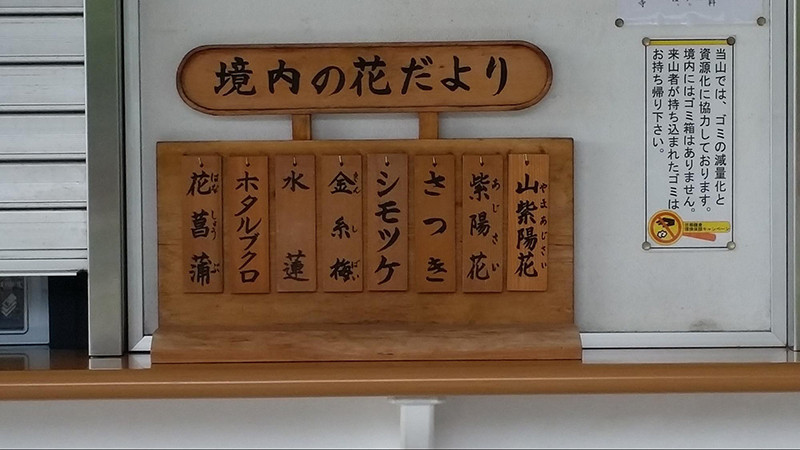 境内の花だより
山紫陽花
やまあじさい
紫陽花
あじさい
さつき
シモツケ
金糸梅
きんしばい
水蓮
ホタルブクロ
花菖蒲
はなしょうぶ
当山では、ゴミの減量化と
資源化に協力しております。
境内にはゴミ箱はありません。
来山者が持ち込まれたゴミは
お持ち帰り下さい。